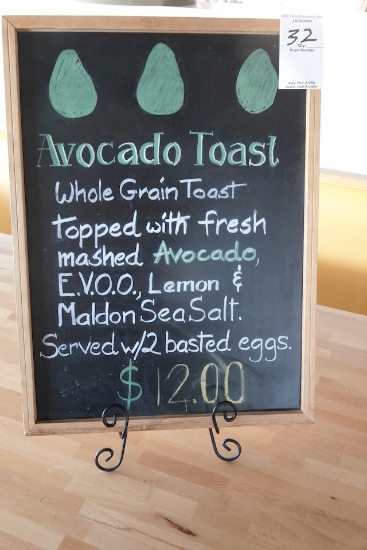 Lot Number
32
Qty
Buyer Number
Avocado Toast
Whole Grain Toast
Topped with fresh
mashed Avocado,
E.V.O.O., Lemon &
Maldon Sea Salt.
Served w/2 basted eggs.
$12.00